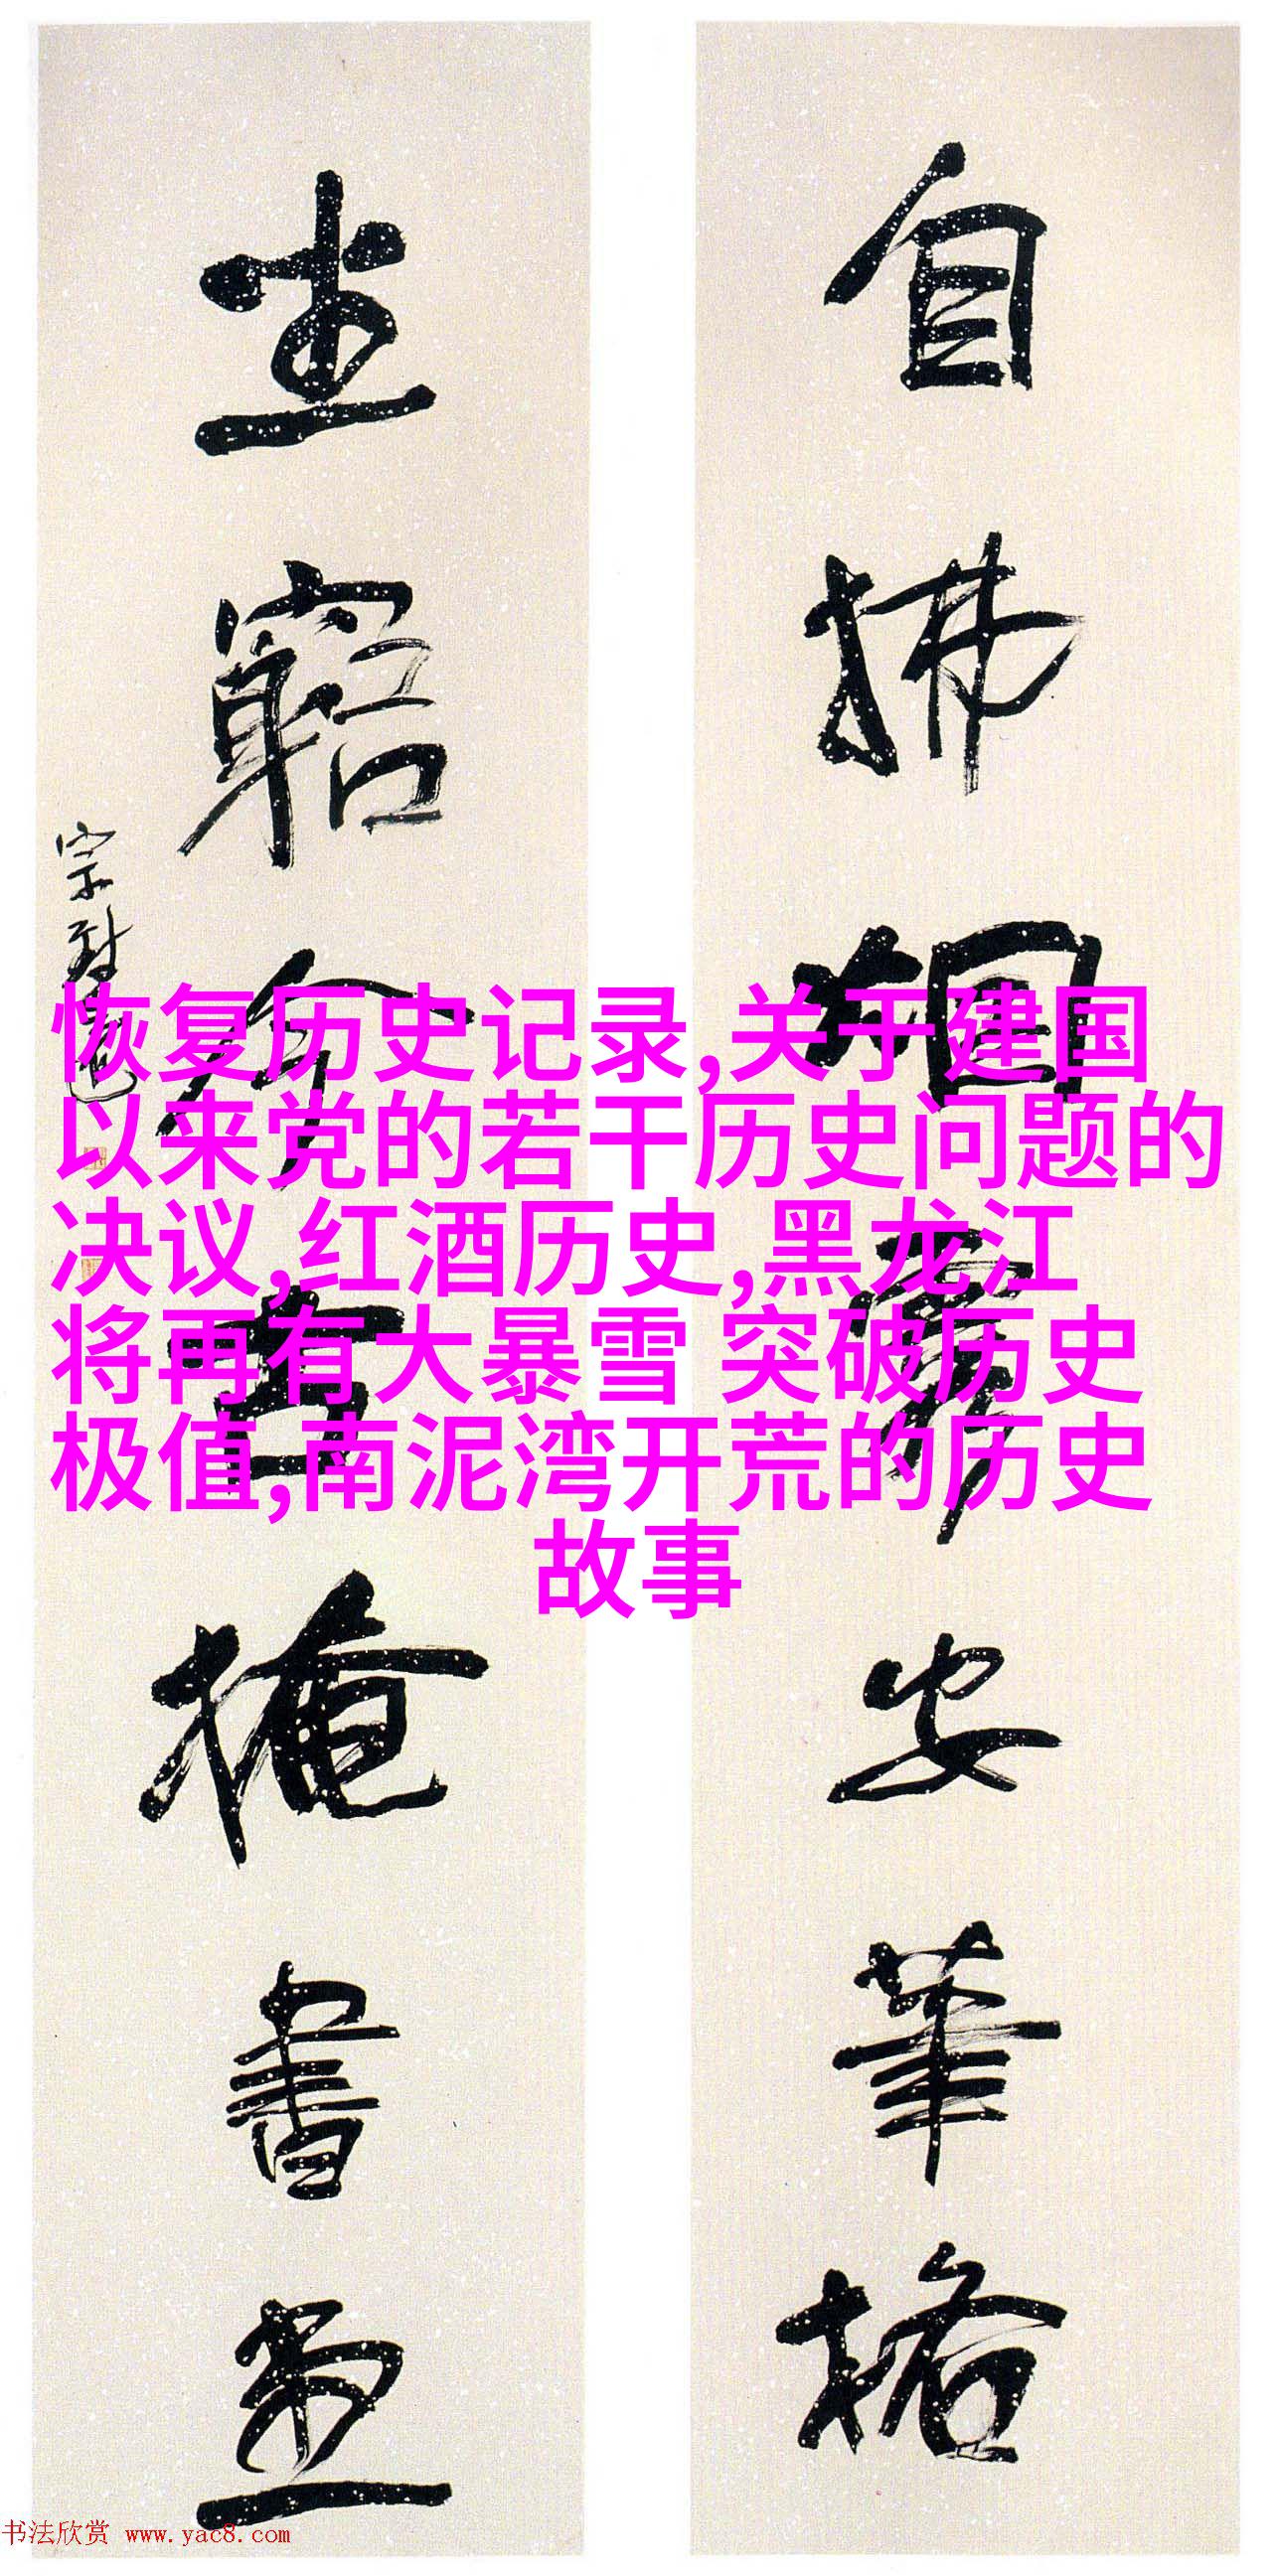 自拂烟霞安筆格
坐窮今古掩書堂
恢复历史记录,关于建国
以来党的若干历史问题的
决议,红酒历史,黑龙江
将再有大暴雪 突破历史
极值,南泥湾开荒的历史
故事
书法欣赏 www.yac8.com